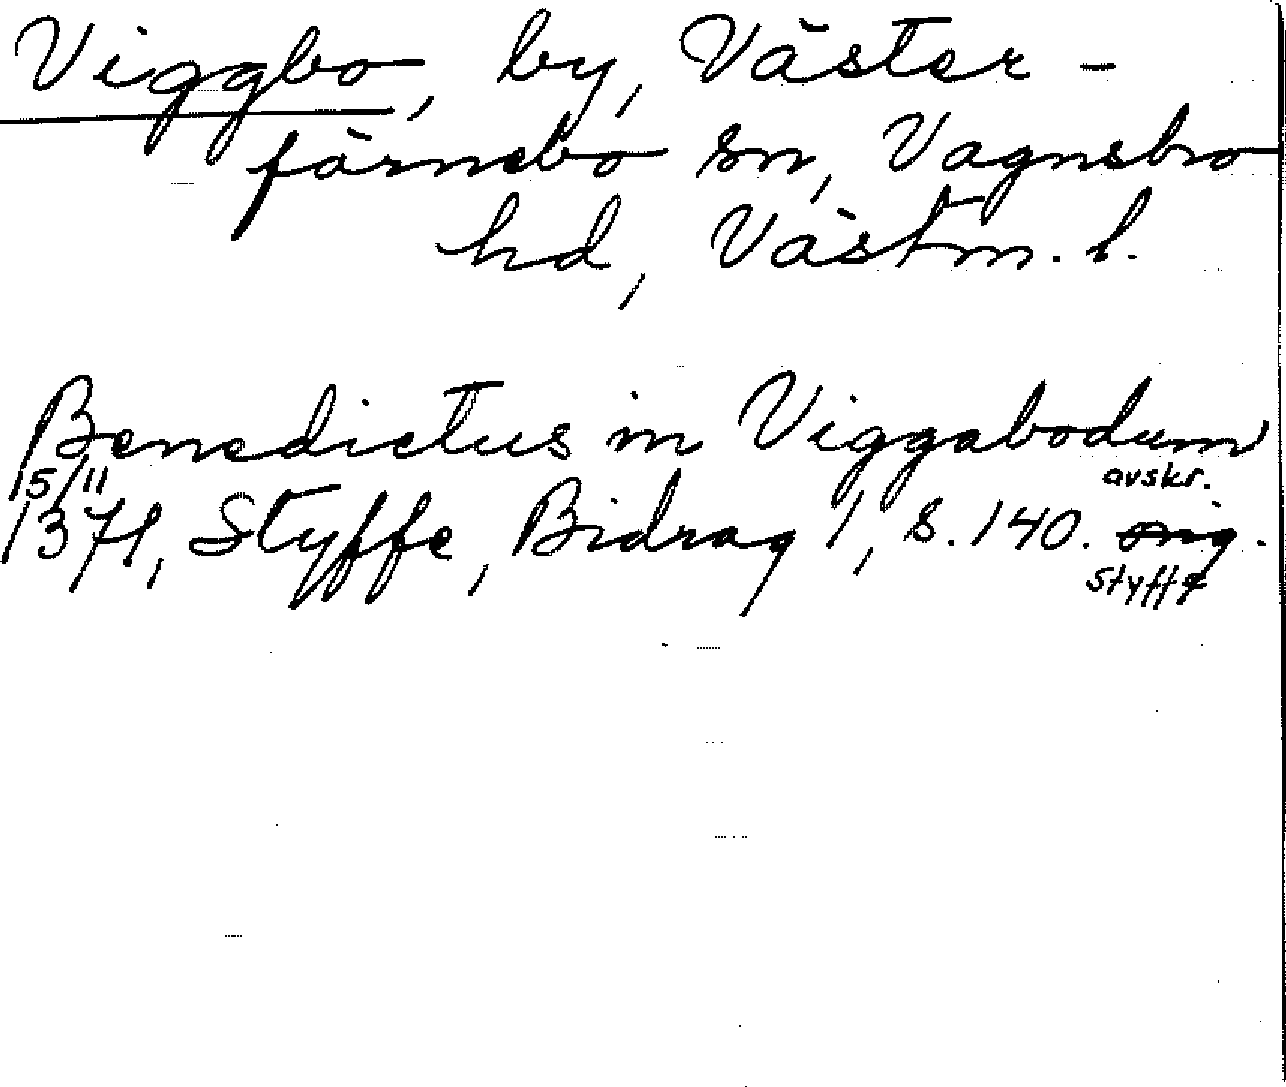 Viggbo, by, Väster-
färnebo sn, Vagnsbro
hd, Västm. l.
Benedictus in Viggabodum
15/11 avskr.
1371, Styffe, Bidrag 1, s. 140. orig.
Styffe